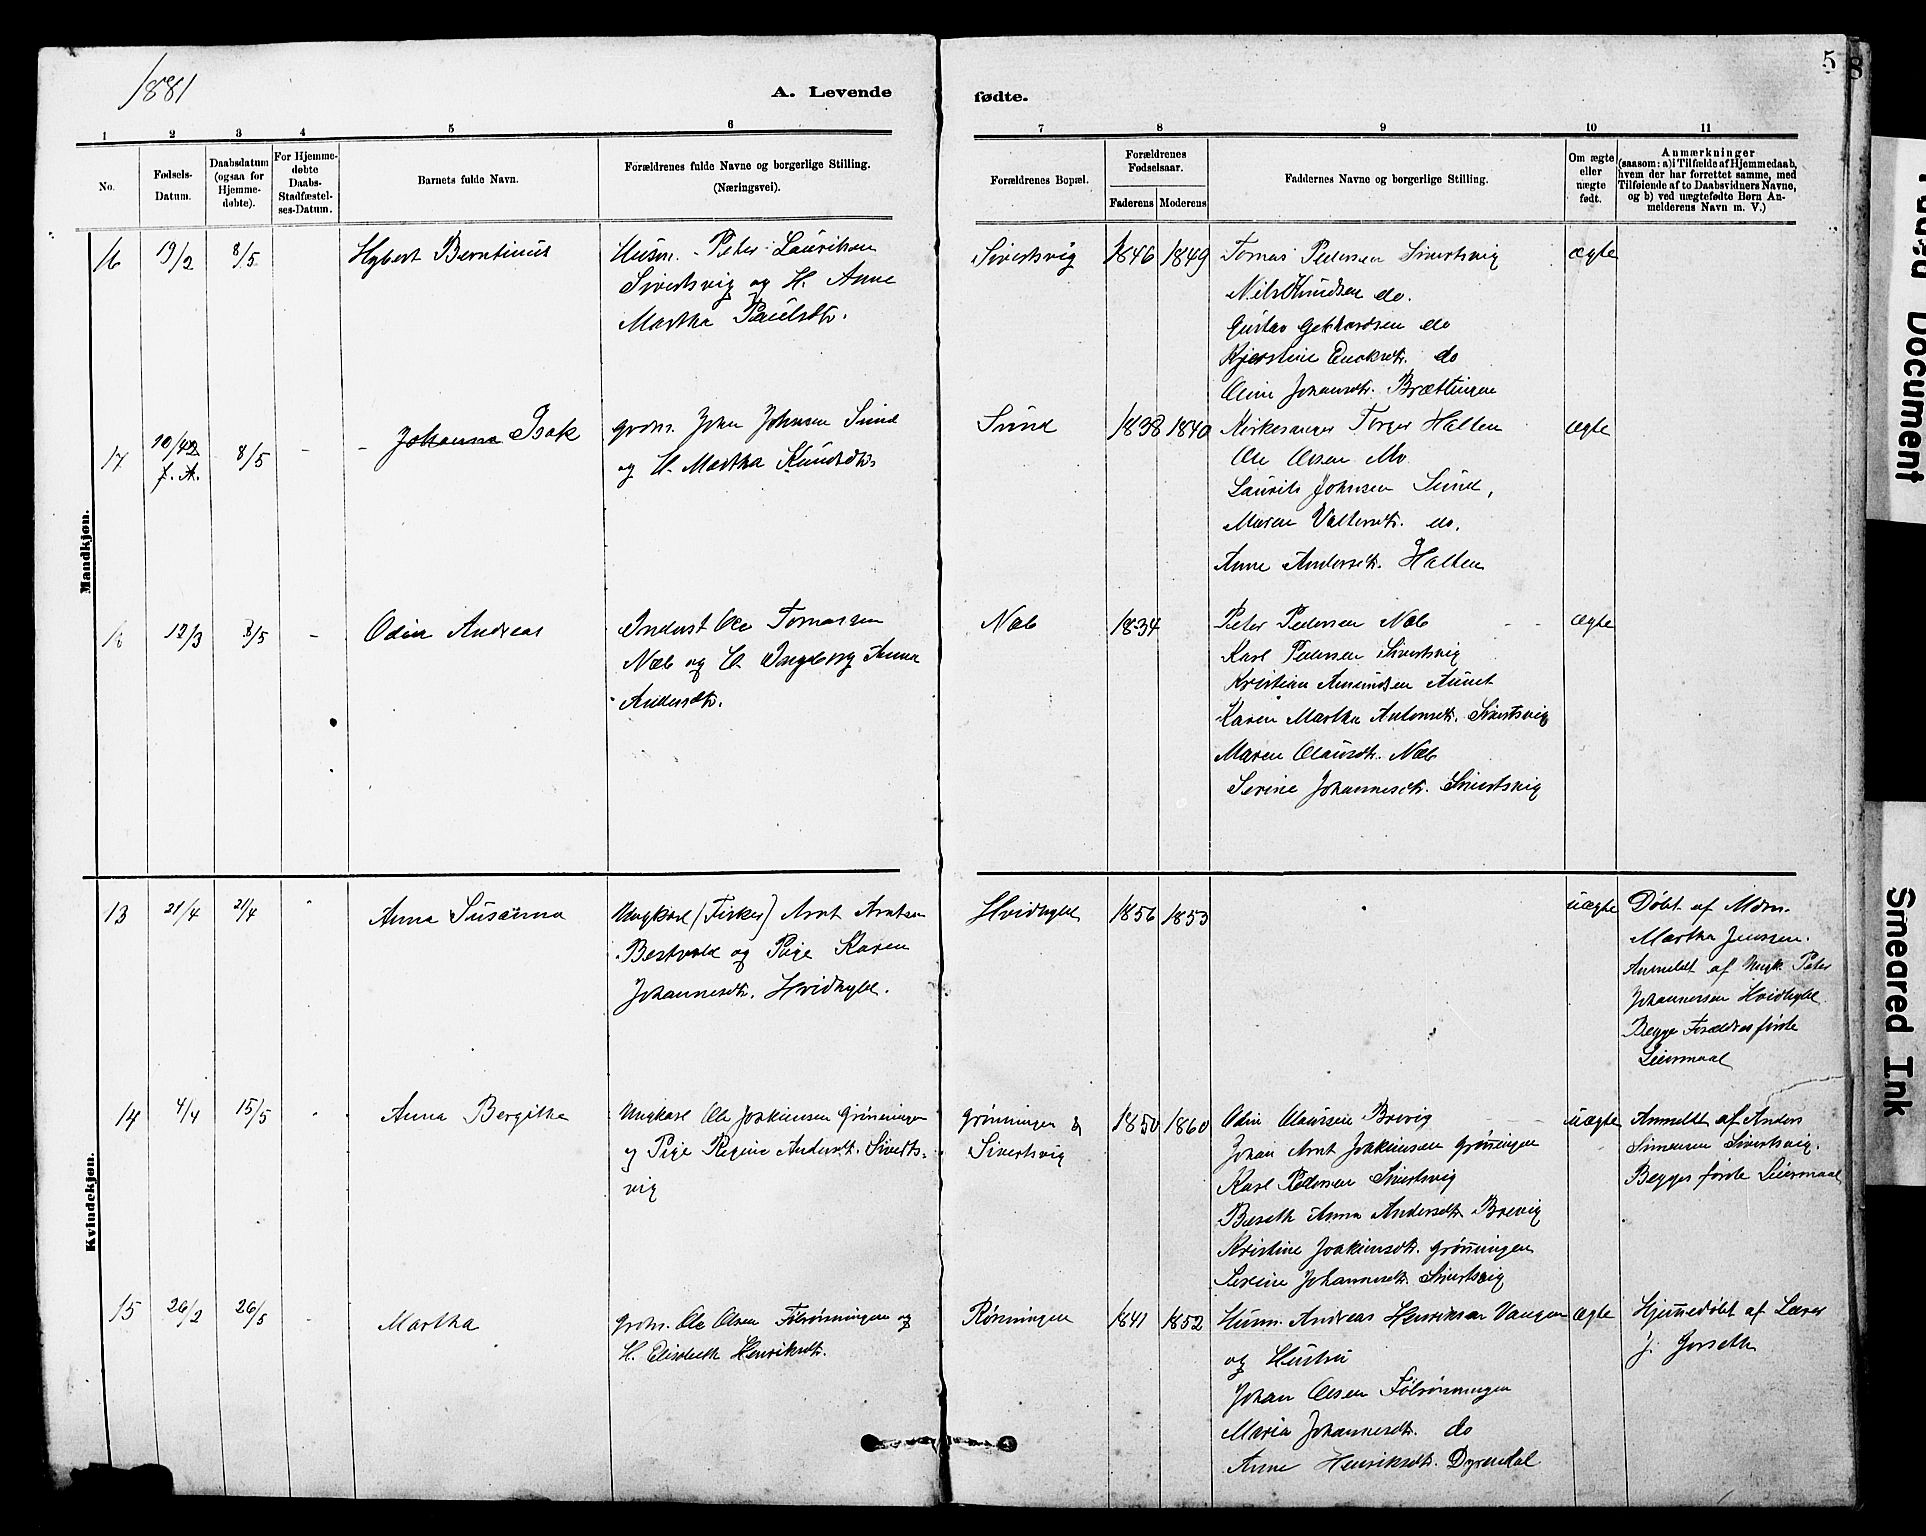 1881
A. Levende
fødte.
5
8
1 2 3 4 5 6 7 8 9 10 11
No.
Fødsels-
Datum.
Daabsdatum
(ogsaa for
Hjemme-
døbte).
For Hjemme-
døbte
Daabs-
Stadfæstel-
ses-Datum.
Barnets fulde Navn.
Forældrenes fulde Navne og borgerlige Stilling.
(Næringsvei).
Forældrenes Bopæl.
Forældrenes
Fødselsaar.
Faderens Moderens
Faddernes Navne og borgerlige Stilling.
Om ægte
eller
uægte
født.
Anmærkninger
(saasom: a) i Tilfælde af Hjemmedaab,
hvem der har forrettet samme, med
Tilføiende af to Daabsvidners Navne,
og b) ved uægtefødte Børn An-
melderens Navn m. V.)
Mandkjøn.
16 19/2 8/5 Hybert Berntinus
Husm. Peter Lauritsen
Sivertsvig og H. Anne
Martha Paulsdtr.
Sivertsvig 1846 1849
Tomas Pedersen Sivertsvig
Nils Knudsen do.
Gustav Gerhardsen do
Kjerstine do
Oline Johansdtr. Brættingen
ægte
17 f. A. 8/5 - - Johanna Isak
Grdm. John Johnsen Sund
og H. Martha Knudsdtr.
Sund 1838 1840
Kirkesanger Torger Halten
Ole Olsen Mo
Laurits Johnsen Sund,
Maren do.
Anne Andersdtr. Halten
ægte
12/3 8/5 - Odin Andreas
Inderst Ole Tomassen
Næb og H. Ingeborg Anna
Andersdtr.
Næb 1834
Peter Pedersen Næb
Karl Pedersen Sivertsvig
Kristian Amundsen Aunet
Karen Martha Antonsdtr. Sivertsvig
Maren Olausdtr. Næb
Serine Johannesdtr. Sivertsvig
ægte
Kvindekjøn.
13 21/4 21/4 Anna Susanna
Ungkarl (Fisker) Arnt Arntsen
Bestvold og Pige Karen
Johannesdtr. Hvidhyld.
Hvidhyld 1856 1853
uægte
Døbt af Mdm.
Martha Jenssen.
Anmeldt af Ungk. Peter
Johannessen Hvidhyld.
Begge Forældres første
Leiermaal
14 4/4 15/5 - Anna Bergithe
Ungkarl Ole Joakimsen Grønningen
og Pige Regine Andersdt. Sivedts-
vig
Grønningen &
Sivertsvig
1850 1860
Odin Olaussen Brevig
Johan Arnt Joakimsen Grønningen
Karl Pedersen Sivertsvig
Bereth Anna Andersdtr Brevig
Kristine Joakimsdtr. Grønningen
Serine Johannesdtr. Sivertsvig
uægte
Anmeldt af Anders
Simonsen Sivertsvig.
Begges første Leiermaal
15 26/2 26/5 - Martha
Grdm. Ole Olsen Følrønningen og
H. Elisabeth Henriksdtr.
Rønningen 1841 1852
Husm. Andreas Henriksen Vangen
og Hustru
Johan Olsen Følrønningen
Maria Johannesdtr. do
Anne Henriksdtr. Dyrendal
ægte
Hjemmedøbt af Lærer
J. Gorseth
Document
Smeared Ink